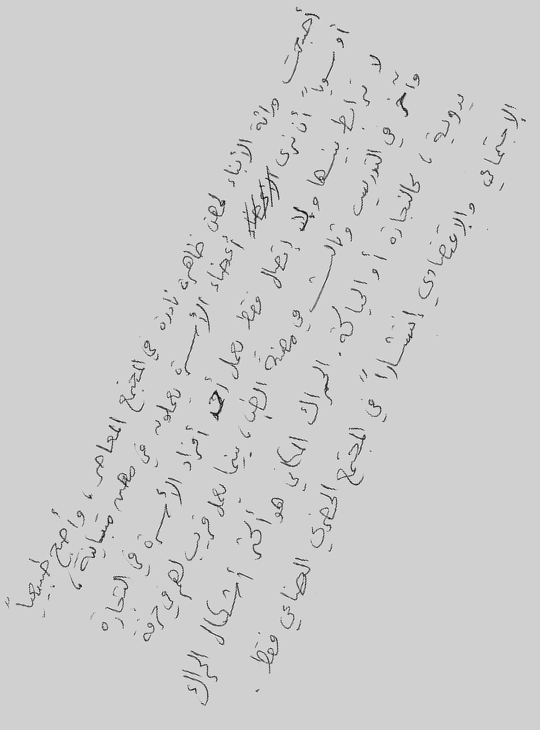 أصبحت وراثة الأبناء لمهن ظاهرة نادرة في المجتمع المعاصر، وأصبح طبيعياً
أو سوياً أن نرى أعضاء الأسرة يعملون في مهن متباينة،
لا ترابط بينها ولا إتصال فقط يعمل أحد أفراد الأسرة في التجارة
وآخر في التدريس وثالث في مهنة الطب، بينما يعمل قريب لهم في حرفة
يدوية، كالنجارة أو الحياكة. الحراك المكاني هو أكثر أشكال الحراك
الإجتماعي والإقتصادي إنتشاراً في المجتمع الحضري الصناعي فقط.